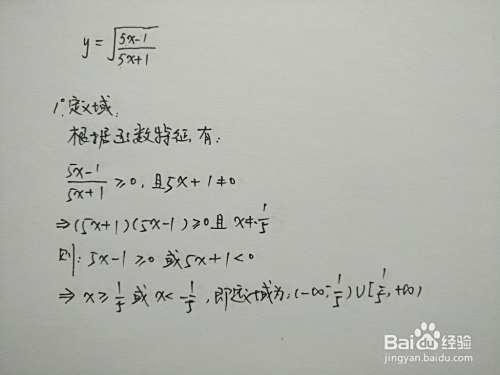 y = √((5x-1)/(5x+1))
1°. 定义域:
根据函数特征, 有:
(5x-1)/(5x+1) ≥0, 且5x+1≠0
⇒(5x+1)(5x-1)≥0且 x≠-1/5
则: 5x-1≥0 或 5x+1<0
⇒ x≥1/5 或 x<-1/5, 即定义域为: (-∞,-1/5)∪[1/5,+∞)
Baidu经验
jingyan.baidu.com